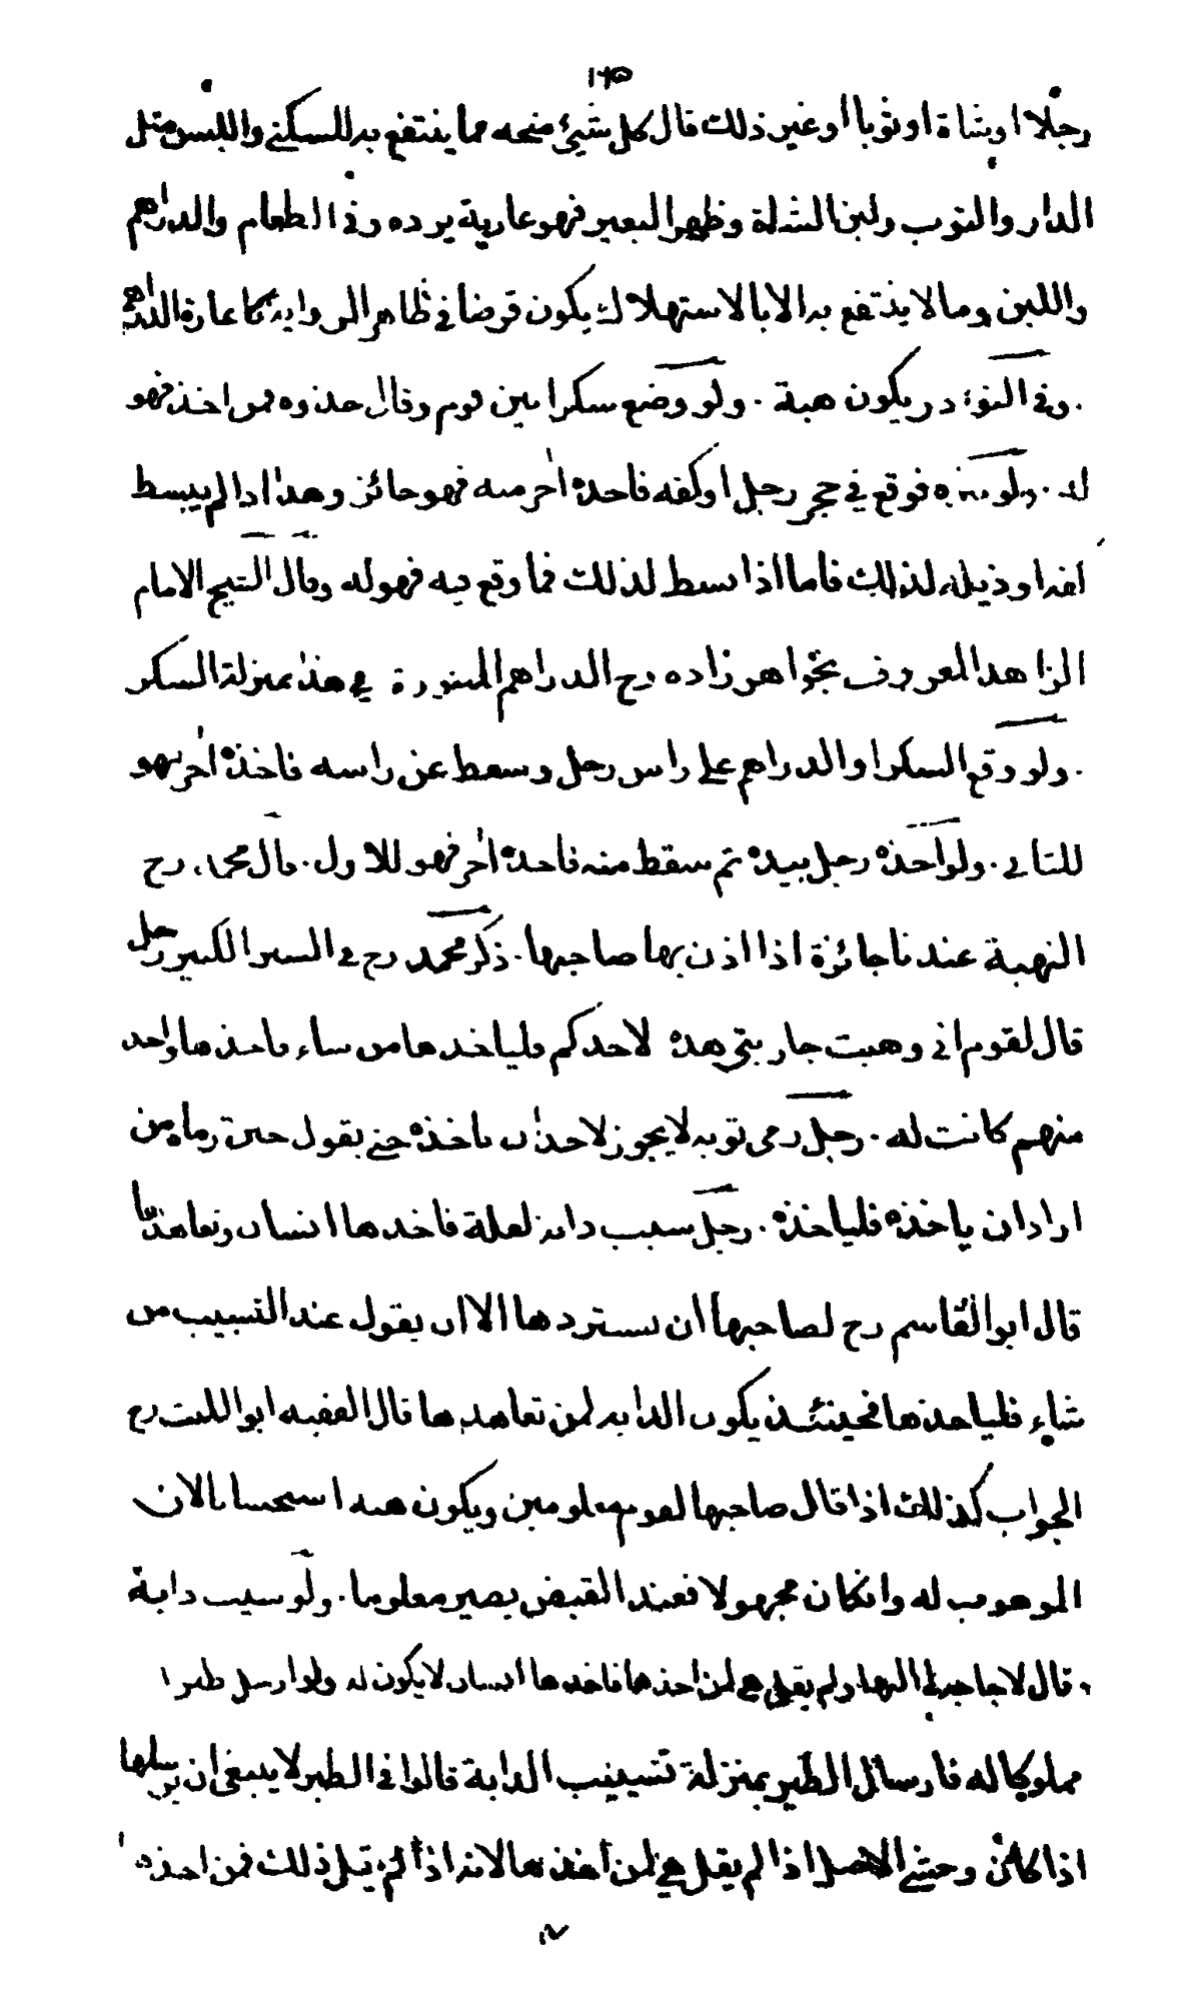 ١٦٥
رجلا او شاة او ثوبا او غير ذلك قال كل شيئ منحه مما ينتفع به للسكنى واللبس مثل
الدار والثوب ولبن الشاة وظهر البعير فهو عارية يرده وفى الطعام والدراهم
واللبن وما لا ينتفع به الا بالاستهلاك يكون قرضا فى ظاهر الرواية كاعارة الدراهم
. وفى النوادر يكون هبة . ولو وضع سكرا بين قوم وقال خذوه فمن اخذ فهو
له . ولو نثره فوقع فى حجر رجل او كفه فاخذه اخر منه فهو جائز وهذا اذا لم يبسط
كفه او ذيله لذلك فاما اذا بسط لذلك فما وقع فيه فهو له وقال الشيخ الامام
الزاهد المعروف بخواهر زاده رح الدراهم المنثورة فى هذا بمنزلة السكر
. ولو وقع السكر او الدراهم على راس رجل وسقط عن راسه فاخذه اخر فهو
للثانى . ولو اخذه رجل بيده ثم سقط منه فاخذه اخر فهو للاول . قال محمد رح
النهبة عندنا جائزة اذا اذن بها صاحبها . ذكر محمد رح فى السير الكبير رجل
قال لقوم انى وهبت جاريتى هذه لاحدكم فلياخذها من شاء فاخذها واحد
منهم كانت له . رجل رمى ثوبه لا يجوز لاحد ان ياخذه حتى يقول حين رماه من
اراد ان ياخذه فلياخذه . رجل سيب دابة لعلة فاخذها انسان وتعاهدها
قال ابو القاسم رح لصاحبها ان يستردها الا ان يقول عند التسييب من
شاء فلياخذها فحينئذ يكون الدابة لمن تعاهدها قال الفقيه ابو الليث رح
الجواب كذلك اذا قال صاحبها لقوم معلومين ويكون هبة استحسانا لان
الموهوب له وانكان مجهولا فعند القبض يصير معلوما . ولو سيب دابة
. قال لا حاجة لى اليها ولم يقل هى لمن اخذها فاخذها انسان لا يكون له ولو ارسل طيرا
مملوكا له فارسال الطير بمنزلة تسييب الدابة قالوا فى الطير لا ينبغى ان يرسلها
اذا كان وحشى الاصل اذا لم يقل هى لمن اخذها لانه اذا لم يقل ذلك فمن اخذه